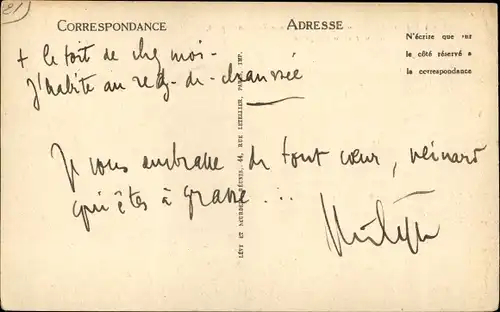 81
CORRESPONDANCE
ADRESSE
N'écrire que sur
le côté réservé a
la correspondance
+ le toit de chez moi -
J'habite au rez-de-chaussée
Je vous embrasse de tout cœur, veinard
qu'êtes à Grasse ...
LÉVY ET NEURDEIN RÉUNIS, 44, RUE LETELLIER, PARIS, IMP.